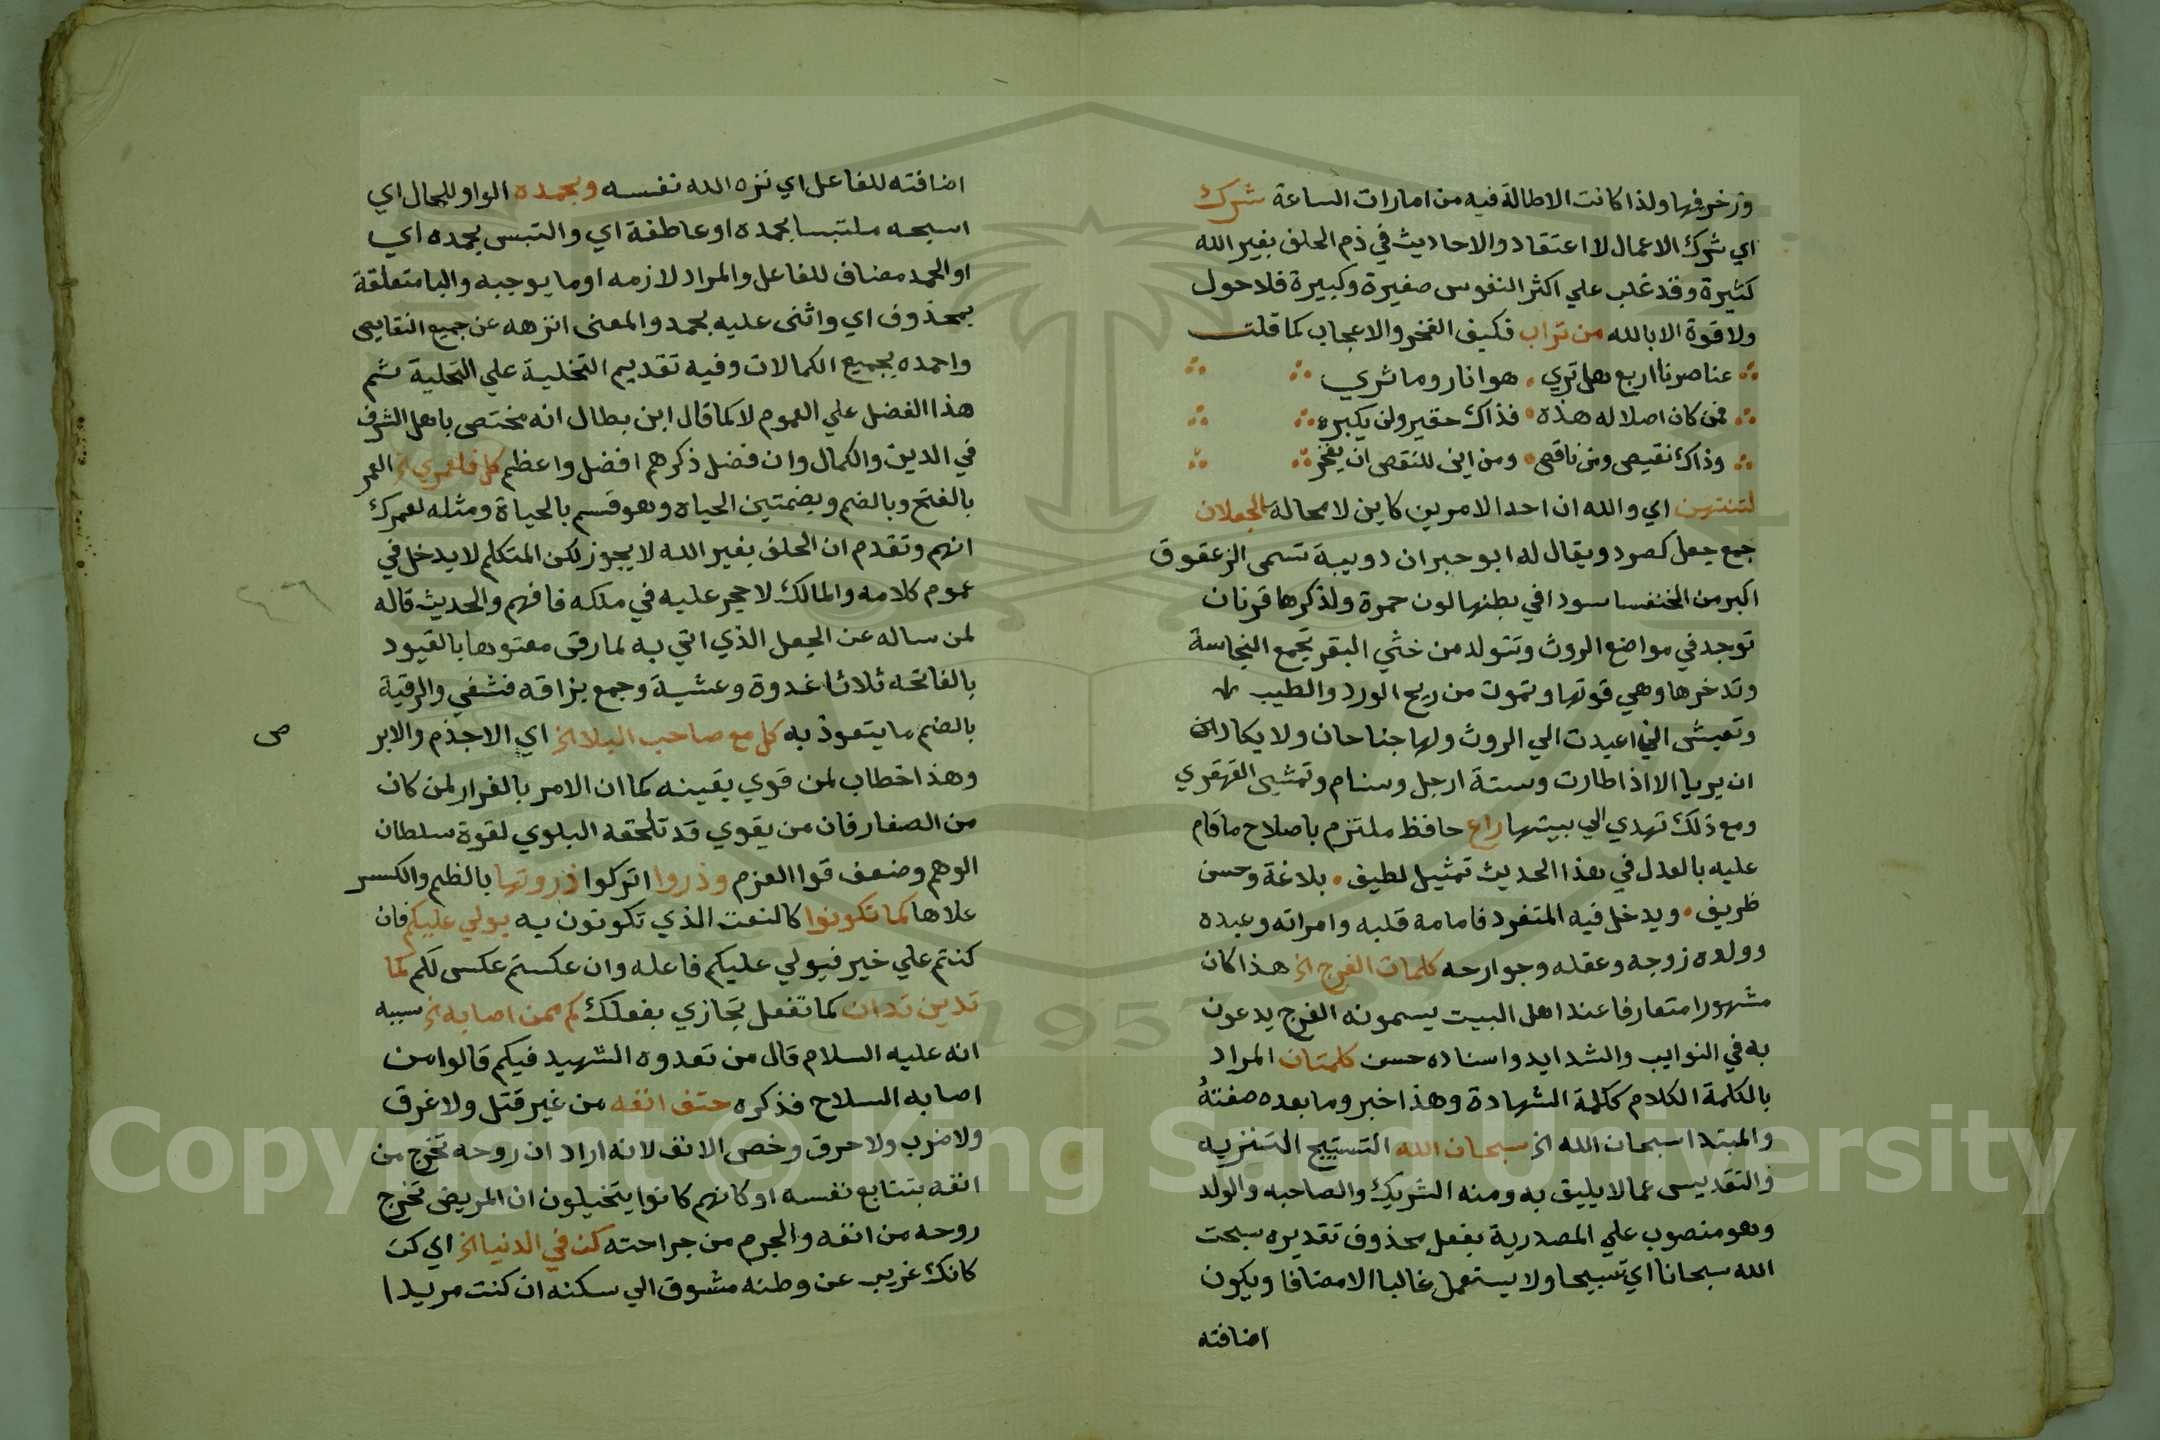 وزخرفها ولذا كانت الاطالة فيه من امارات الساعة شرك
اي شرك الاعمال لا اعتقاد والاحاديث في ذم الحلف بغير الله
كثيرة وقد غلب علي اكثر النفوس صغيرة وكبيرة فلا حول
ولا قوة الا بالله من تراب فكيف الفخر والاعجاب كما قلت
عناصرنا اربع هل تري هوا نار وما ثري
فمن كان اصلا له هذه فذاك حقير ولن يكبره
وذاك نقيص ومن ناقص ومن اين للنقص ان يفخر
لتنتهن اي والله ان احد الامرين كاين لا محالة بالجعلان
جمع جعل كصرد ويقال له ابو جبران دويبة تسمى الزعقوق
اكبر من الخنفسا سودا في بطنها لون حمرة ولذكرها قرنان
توجد في مواضع الروث وتتولد من خثي البقر تجمع النجاسة
وتدخرها وهي قوتها وتموت من ريح الورد والطيب
وتعيش اذا اعيدت الي الروث ولها جناحان ولا يكادان
ان يريا الا اذا طارت وستة ارجل وسنام وتمشي القهقري
ومع ذلك تهدي الي بيتها راع حافظ ملتزم باصلاح ما قام
عليه بالعدل في هذا الحديث تمثيل لطيف بلاغة وحسن
ظريف ويدخل فيه المتفرد فامامه قلبه وامراته وعبده
وولده زوجه وعقله وجوارحه كلمات الفرج الخ هذا كان
مشهورا متعارفا عند اهل البيت يسمونه الفرج يدعون
به في النوايب والشدايد واسناده حسن كلمتان المراد
بالكلمة الكلام ككلمة الشهادة وهذا خبر وما بعده صفته
والمبتدا سبحان الله الخ سبحان الله التسبيح التنزيه
والتقديس عما لا يليق به ومنه الشريك والصاحبه والولد
وهو منصوب علي المصدرية بفعل محذوف تقديره سبحت
الله سبحانا اي تسبيحا ولا يستعمل غالبا الا مضافا ويكون
اضافته
اضافته للفاعل اي نزه الله نفسه وبحمده الواو للحال اي
اسبحه ملتبسا بحمده او عاطفة اي والتبس بحمده اي
او الحمد مضاف للفاعل والمراد لازمه او ما يوجبه والبا متعلقة
بمحذوف اي واثني عليه بحمد والمعنى انزهه عن جميع النقايص
واحمده بجميع الكمالات وفيه تقديم التخلية علي التحلية ثم
هذا الفضل علي العموم لا كما قال ابن بطال انه مختص باهل الشرف
في الدين والكمال وان فضل ذكرهم افضل واعظم كل فلعمري الخ العمر
بالفتح وبالضم وبضمتين الحياه وهو قسم بالحياة ومثله لعمرك
انهم وتقدم ان الحلف بغير الله لا يجوز لكن المتكلم لا يدخل في
عموم كلامه والمالك لا حجر عليه في ملكه فافهم والحديث قاله
لمن ساله عن الجعل الذي اتي به لما رقى معتوها بالقيود
بالفاتحه ثلاثا غدوة وعشية وجمع بزاقه فشفي والرقية
بالضم ما يتعوذ به كل مع صاحب البلا الخ اي الاجذم والابر
ص
وهذا خطاب لمن قوي يقينه كما ان الامر بالفرار لمن كان
من الصغار فان من يقوي قد تلحقه البلوي لقوة سلطان
الوهم وضعف قوا العزم وذروا اتركوا ذروتها بالظم والكسر
علاها كما تكونوا كالنعت الذي تكونون به يولي عليكم فان
كنتم علي خير فيولي عليكم فاعله وان عكستم عكس لكم كما
تدين تدان كما تفعل تجازي بفعلك كم ممن اصابه الخ سببه
انه عليه السلام قال من تعدوه الشهيد فيكم قالوا من
اصابه السلاح فذكره حتف انفه من غير قتل ولا غرق
ولا ضرب ولا حرق وخص الانف لانه اراد ان روحه تخرج من
انفه بتتابع نفسه او كانهم كانوا يتخيلون ان المريض تخرج
روحه من انفه والجرم من جراحته كن في الدنيا الخ اي كن
كانك غريب عن وطنه مشوق الي سكنه ان كنت مريدا
Copyright © King Saud University
1957